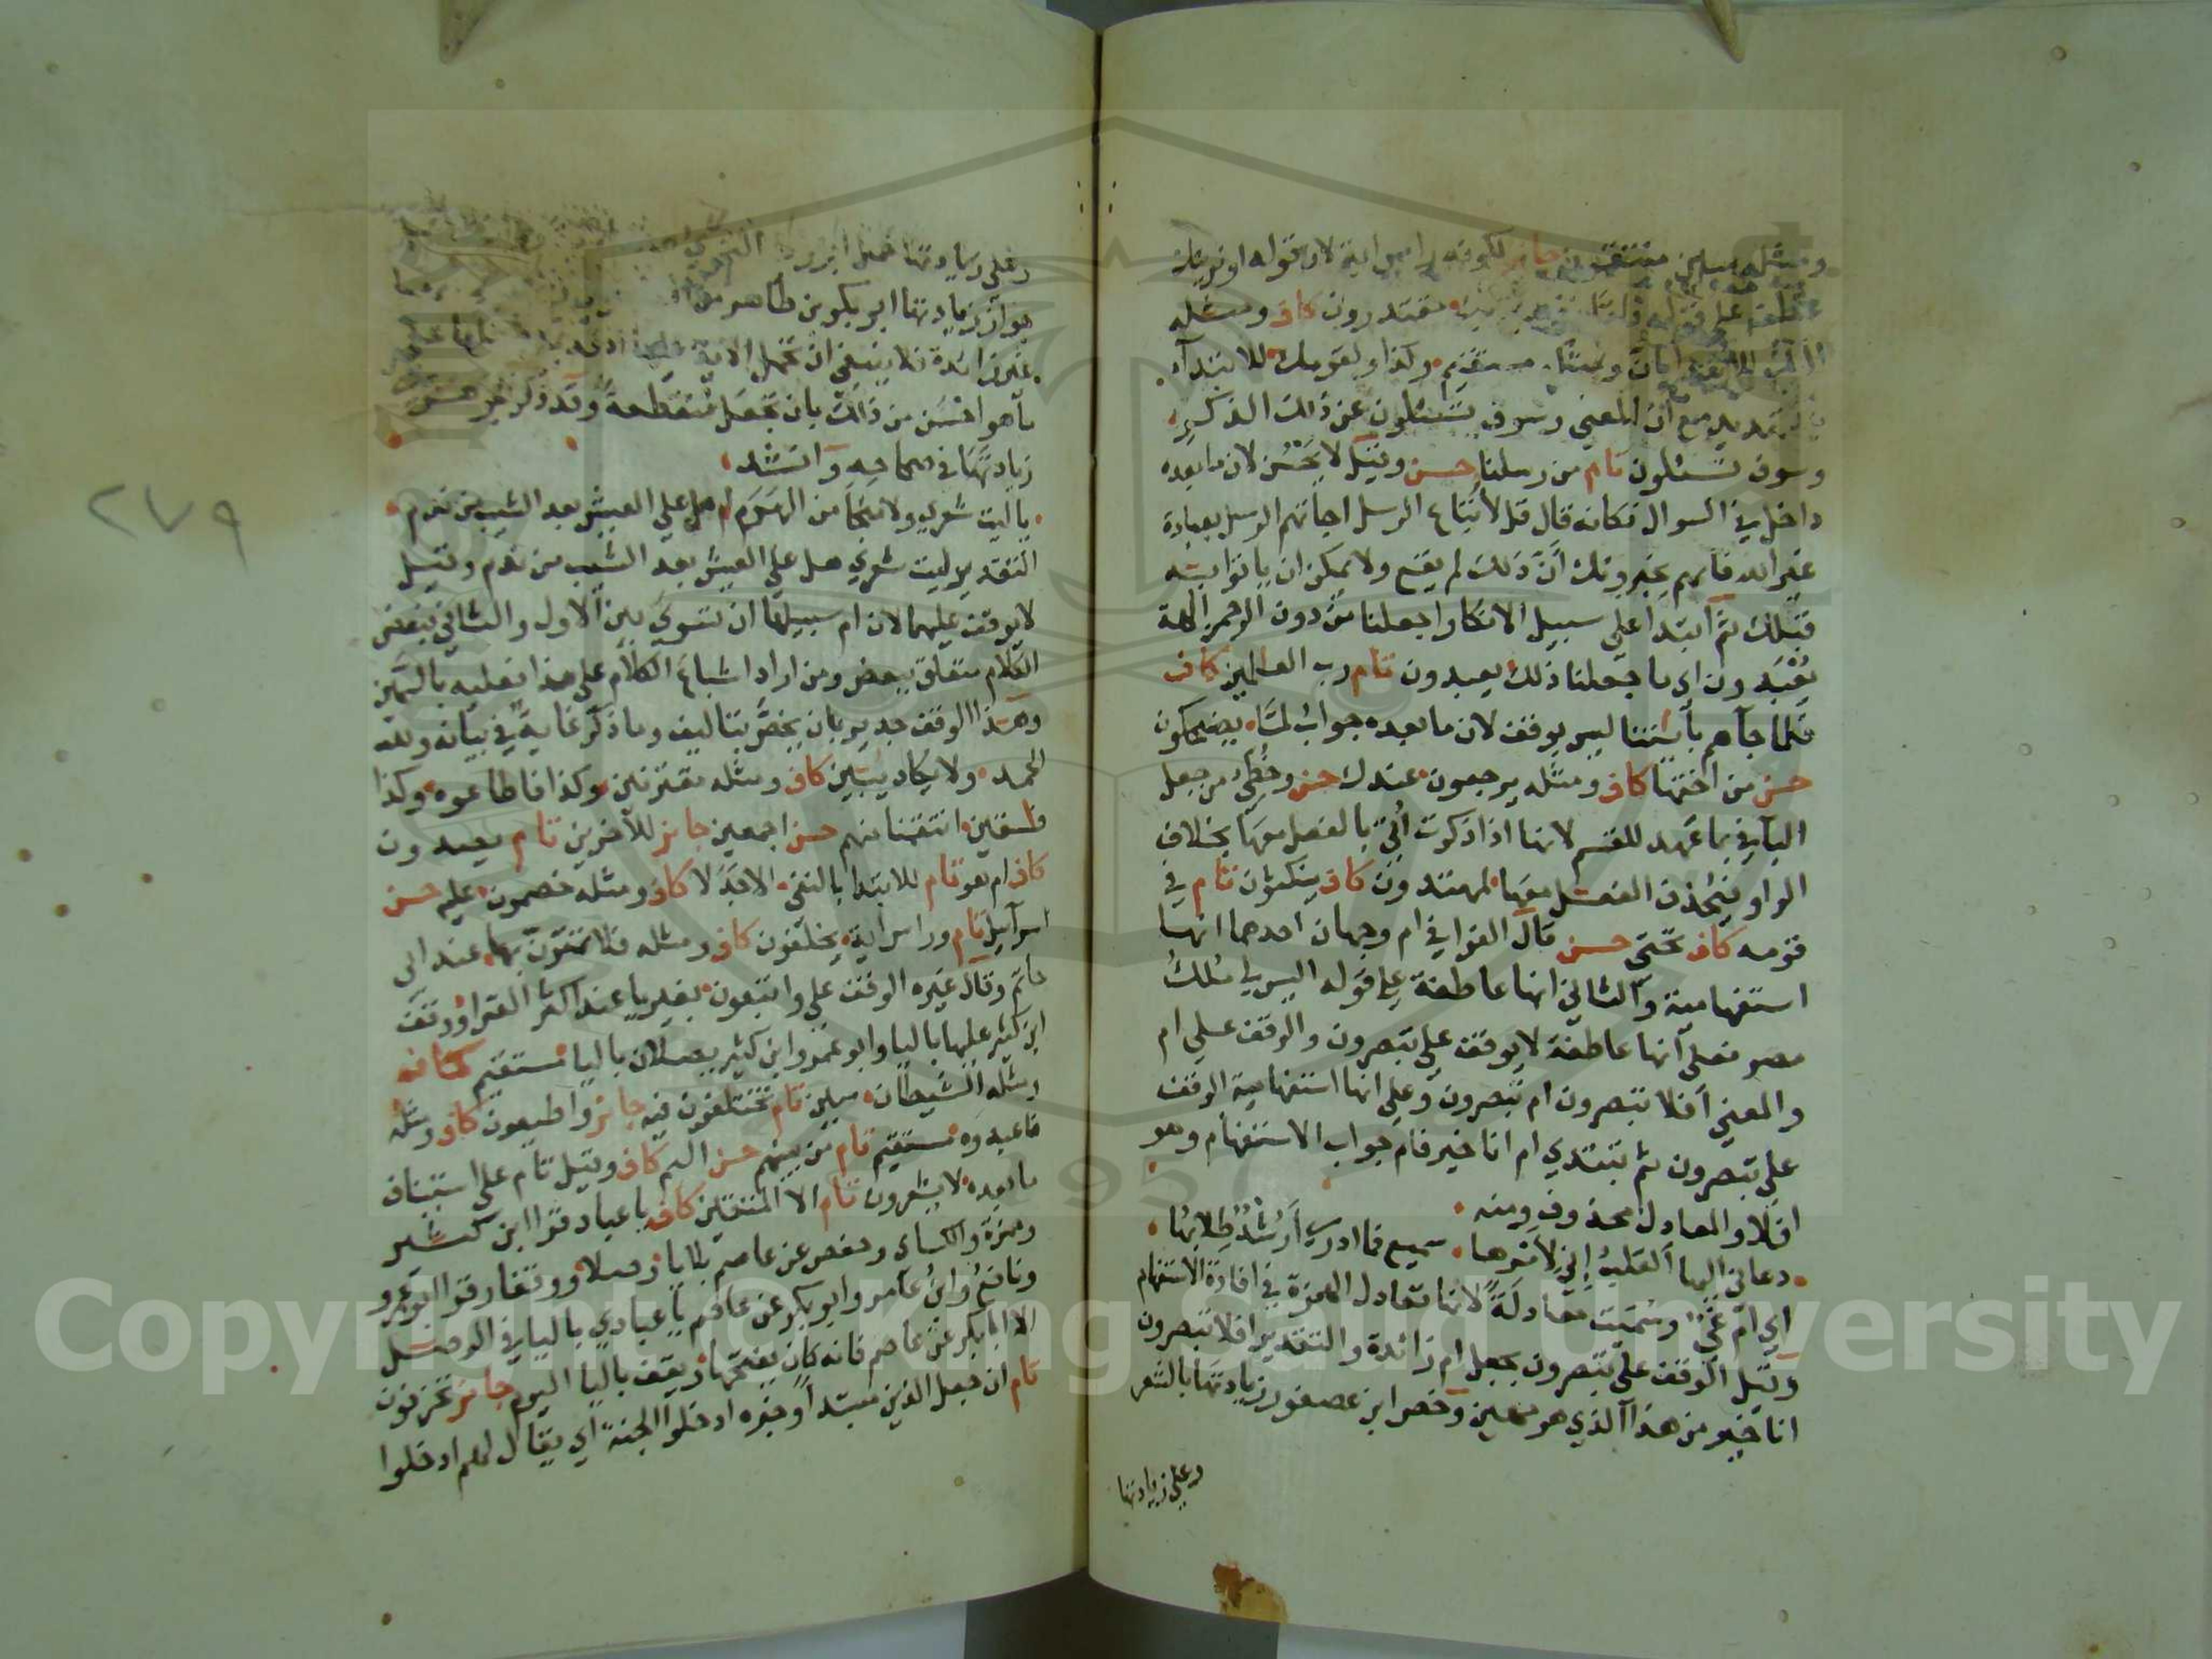 ومثله مبين منتقمون جايز لكونه راس اية لان قوله او نرينك
عطف على قوله فاما نذهبن بك مقتدرون كاف ومثله
اليك للابتداء بان ومثله مستقيم ولقومك للابتدآء
بالتهديد مع ان المعني وسوف تسئلون عن ذلك الذكر
وسوف تسئلون تام من رسلنا حسن وقيل لا يحسن لان ما بعده
داخل في السوال فكانه قال قل لأتباع الرسل اجاتهم الرسل بعبادة
غير الله فانهم يخبرونك أنّ ذلك لم يقع ولا يمكن ان ياتوا به
قبلك ثم ابتدا على سبيل الانكار اجعلنا من دون الرحمن الهة
يعبدون اي ما جعلنا ذلك يعبدون تام رب العالمين كاف
فلما جآهم بأيتنا ليس بوقف لان ما بعده جواب لمّا يضحكون
حسن من اختها كاف ومثله يرجعون عندك حسن وخطئ من جعل
البآ في بما عهد للقسم لانها اذا ذكرت أتي بالفعل معها بخلاف
الواو فيحذف الفعل معها لمهتدون كاف ينكثون تام في
قومه كاف تحتي حسن قال الفرا في ام وجهان احدهما انها
استفهامية والثاني انها عاطفة على قوله اليس لي ملك
مصر فعلى انها عاطفة لا يوقف على تبصرون والوقف على ام
والمعني افلا تبصرون ام تبصرون وعلى انها استفهامية الوقف
على تبصرون ثم تبتدي ام انا خير فام جواب الاستفهام وهو
افلا والمعادل محذوف ومنه
دعاني اليها القلب إني لأمرها سميع فما ادري أرشد طلابها
اي ام غيّ وسميت معادلة لانها تعادل الهمزة في افادة الاستفهام
وقيل الوقف على تبصرون بجعل ام زائدة والتقدير افلا تبصرون
انا خير من هذا الذي هو مهين وخص ابن عصفور زيادتها بالشعر
وعلى زيادتها
وعلى زيادتها
جواز زيادتها ابو بكر بن طاهر
غير زائدة فلا ينبغي ان تحمل الاية
ما هو احسن من ذلك بان تجعل منقطعة وقد ذكر الجوهري
زيادتها في صحاحه وانشد
ياليت شعري ولا منجا من الهرم ام هل على العيش بعد الشيب من ندم
التقدير ليت شعري هل على العيش بعد الشيب من ندم وقيل
لا يوقف عليهما لان ام سبيلها ان تسوي بين الاول والثاني فبعض
الكلام متعلق ببعض ومن اراد اشباع الكلام على هذا فعليه بالسمين
وهذا الوقف جدير بان يخص بتاليف وما ذكر غاية في بيانه ولله
الحمد ولا يكاد يبين كاف ومثله مقترنين وكذا فاطاعوه وكذا
فاسقين انتقمنا منهم حسن اجمعين جايز للآخرين تام يصدون
كاف ام هو تام للابتدا بالنفي الا جدلا كاف ومثله خصمون عليه حسن
اسرآيل تام وراس اية يخلفون كاف ومثله فلا تمترن بها عند ابي
حاتم وقال غيره الوقف على واتبعون بغير يا عند اكثر القرا ووقف
ابن كثير عليها باليا وابو عمرو وابن كثير يصلان باليا مستقيم كاف
ومثله الشيطان مبين تام تختلفون فيه جايز واطيعون كاف ومثله
فاعبدوه مستقيم تام من بينهم حسن اليم كاف وقيل تام على استيناف
ما بعده لا يشعرون تام الا المتقين كاف يا عباد قرا ابن كثير
وحمزة والكساي وحفص عن عاصم بلا يا وصلا ووقفا وقرا ابو عمرو
ونافع وابن عامر وابو بكر عن عاصم يا عبادي باليا في الوصل
الا ابا بكر عن عاصم فانه كان يفتحها ويقف باليا اليوم جايز تحزنون
تام ان جعل الذين مبتدأ وخبره ادخلوا الجنة اي يقال لهم ادخلوا
٢٧٩
Copyright © King Saud University
1957